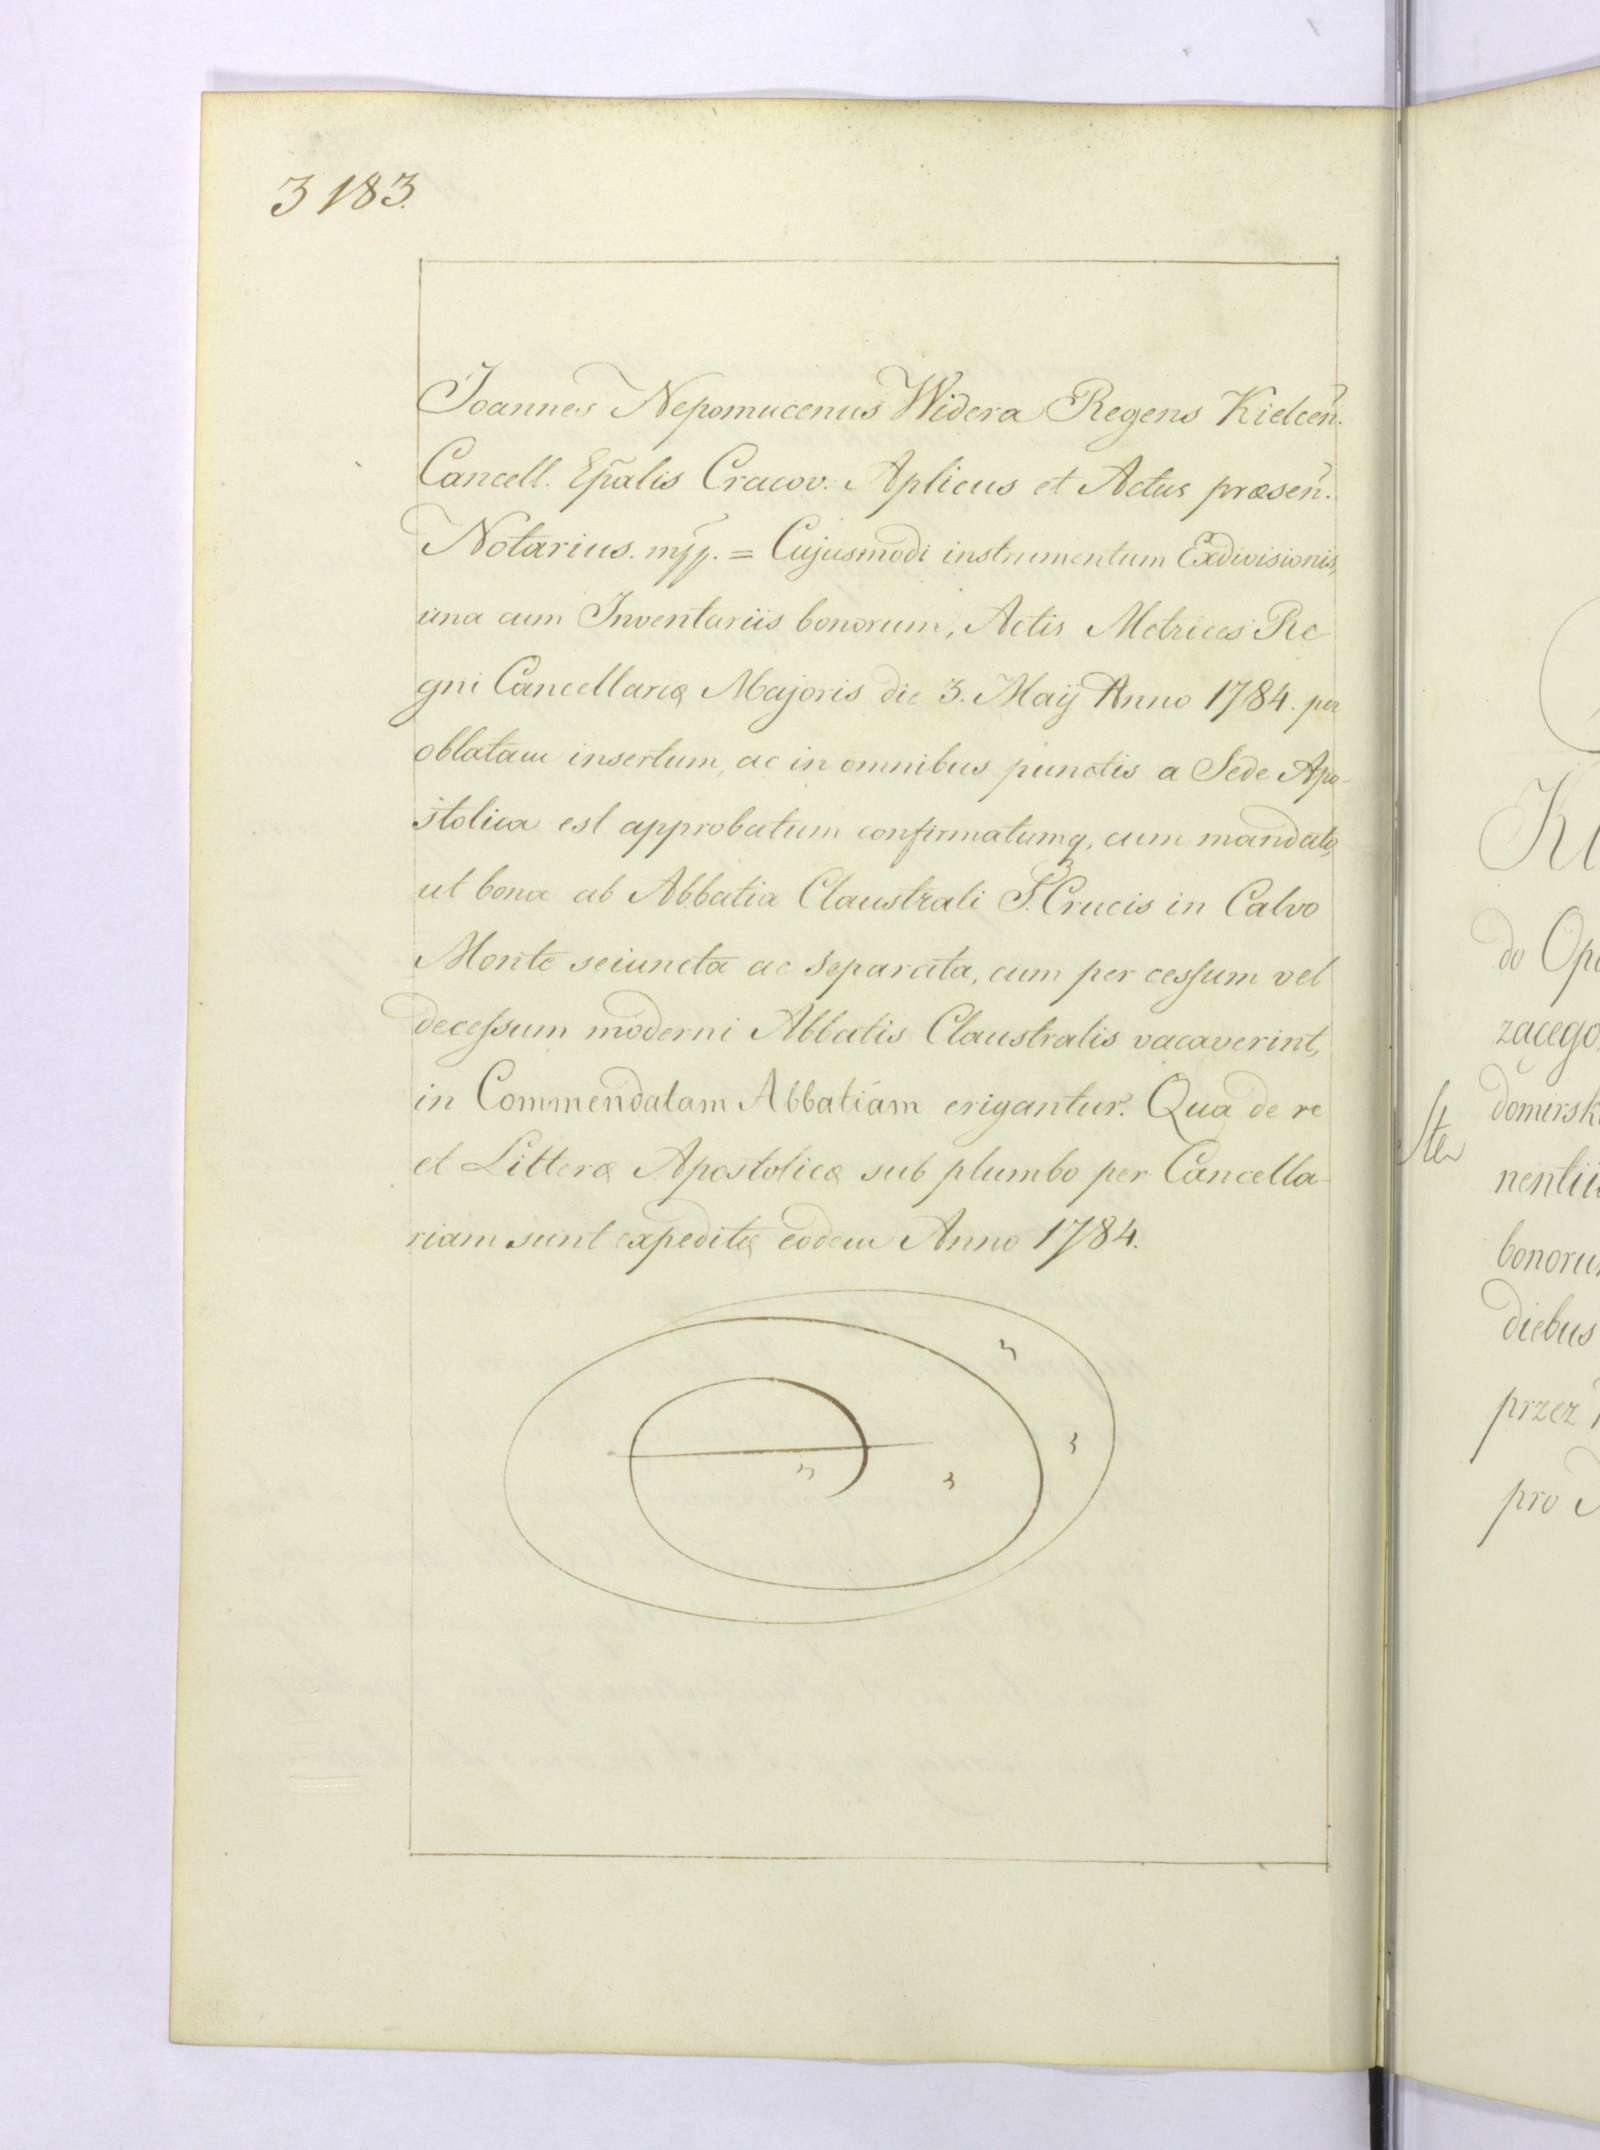 3183.
Joannes Nepomucenus Widera Regens Kielceñ.
Cancell. Epalis Cracov. Aplicus et Actus præseñ.
Notarius. mpp. = Cujusmodi instrumentum Exdivisionis,
una cum Inventariis bonorum, Actis Metrices Re
gni Cancellariæ Majoris die 3. Maij Anno 1784. per
oblatam insertum, ac in omnibus punctis a Sede Apo-
stolica est approbatum confirmatumq, cum mandato,
ut bona ab Abbatia Claustrali S. Crucis in Calvo
Monte seiuncta ac separata, cum per cessum vel
decessum moderni Abbatis Claustralis vacaverint,
in Commendatam Abbatiam erigantur. Qua de re
et Litteræ Apostolicæ sub plumbo per Cancella-
riam sunt expeditæ eodem Anno 1784.
do Op
zącego
domirsk
nentii
bonoru
diebus
przez
pro